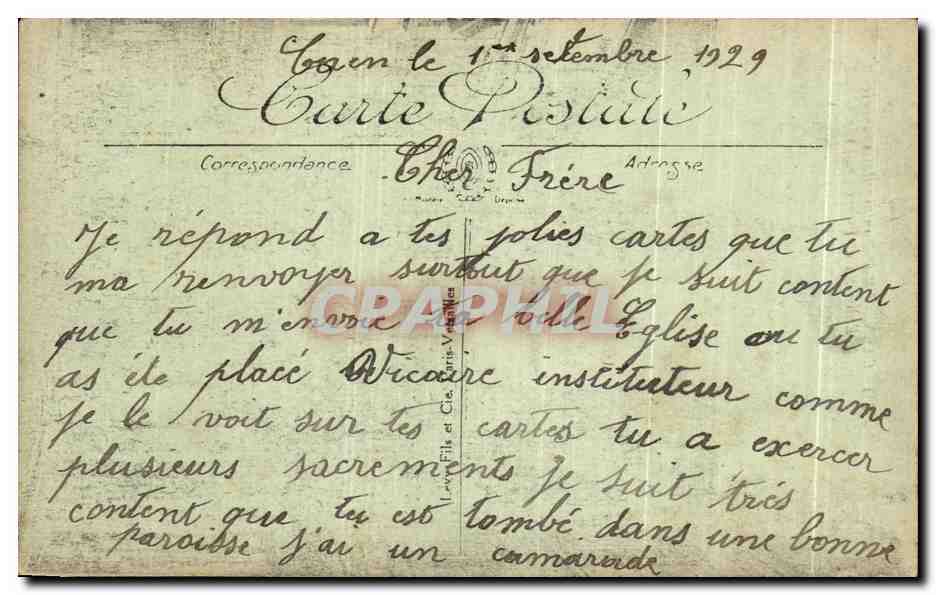 Caen le 1er setembre 1929
Carte Postale
Correspondance
Adresse
Cher Frére
Je répond a tes jolies cartes que tu
ma renvoyer surtout que je suit content
que tu m'envoie ta bille Eglise ou tu
as éte placé Vicaire instituteur comme
je le voit sur tes cartes tu a exercer
plusieurs sacrements je suit trés
content que tu est tombé dans une bonne
paroisse j'ai un camarade
Levy Fils et Cie, Paris-Versailles
CPAPHIL